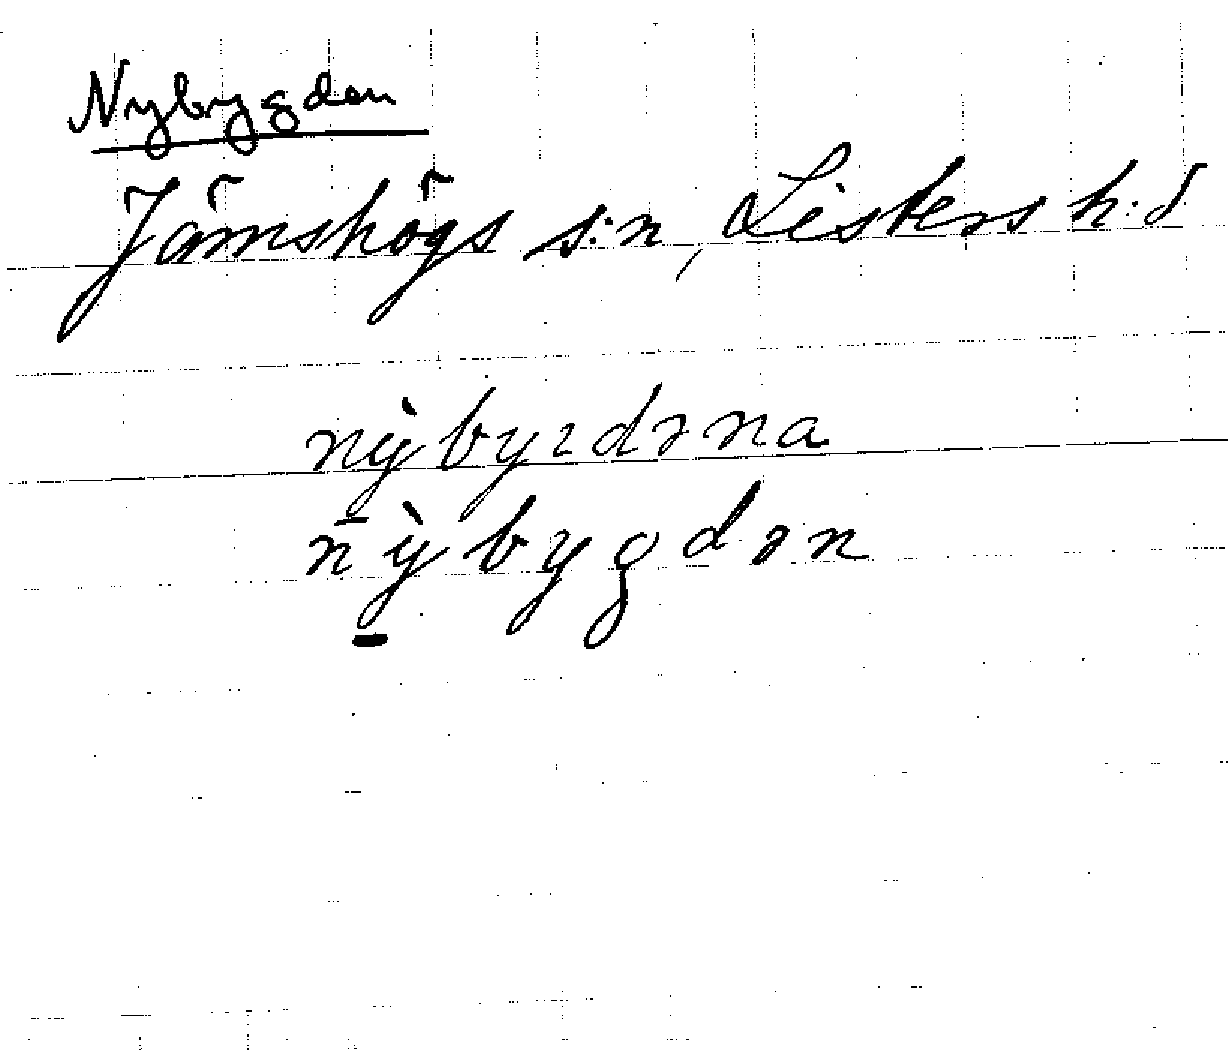 Nybygden
Jämshögs s:n, Listers h:d
nỳbyɿdəna
nỳbygdən